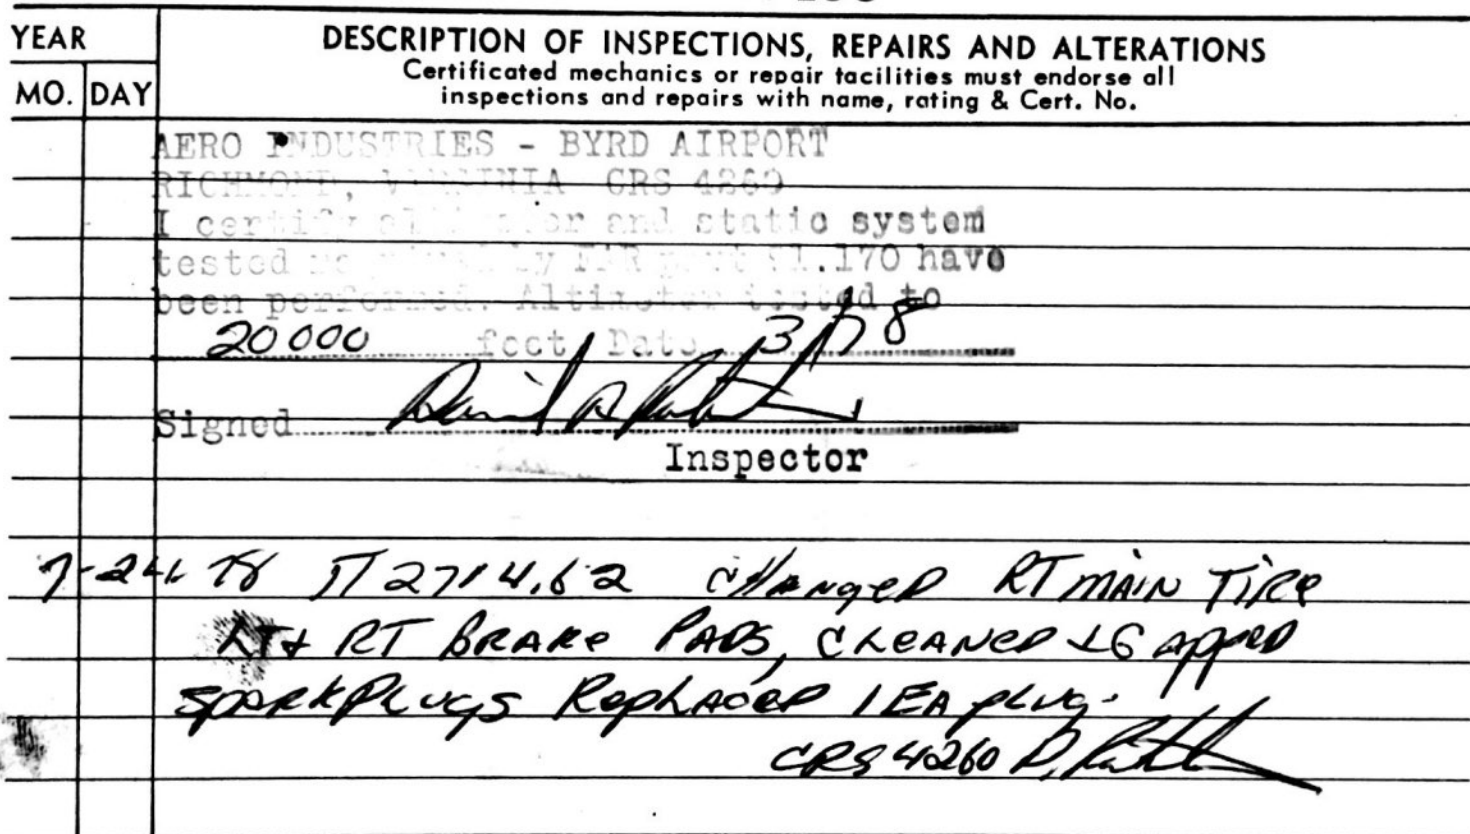 YEAR
MO. DAY
DESCRIPTION OF INSPECTIONS, REPAIRS AND ALTERATIONS
Certificated mechanics or repair facilities must endorse all
inspections and repairs with name, rating & Cert. No.
AERO INDUSTRIES - BYRD AIRPORT
RICHMOND, VIRGINIA CRS 4260
I certify altimeter and static system
tested required by FAR part 91.170 have
been performed. Altimeter tested to
20000 feet Date
Signed
Inspector
78 TT 2714.62 CHANGED RT MAIN TIRE
LT+ RT BRAKE PADS, CLEANED + GAPPED
SPARKPLUGS REPLACED 1 EA PLUG.
CRS 4260